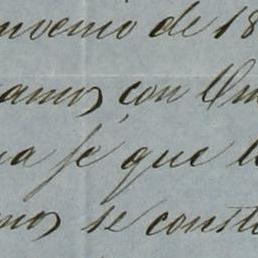 nvenio de 18
amos, con
a fé que l
mos se const